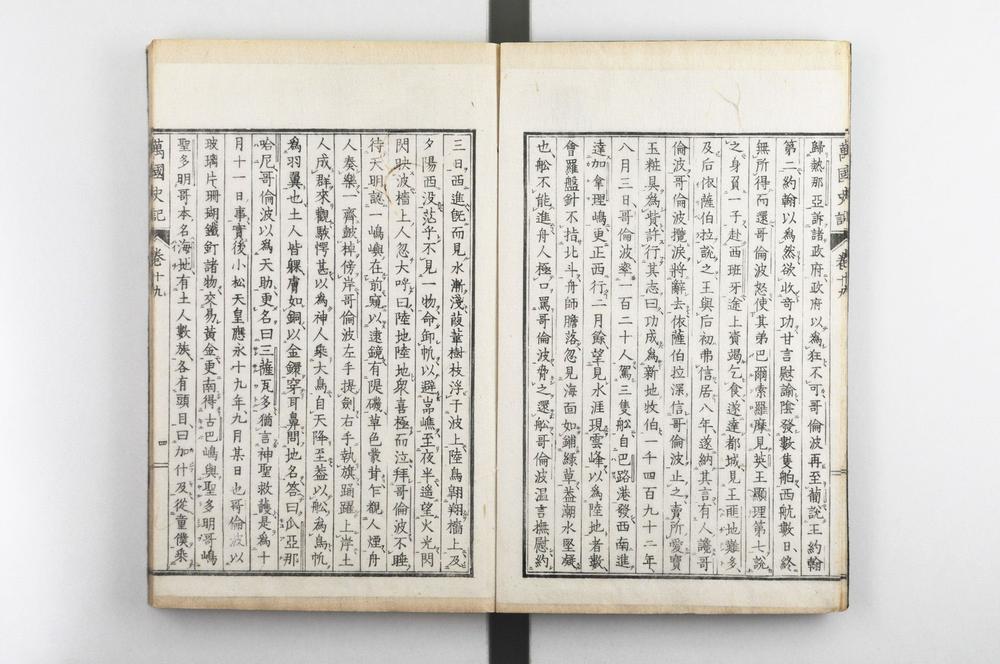 歸熱那亞訴諸政府政府以為狂不可哥倫波再至葡說王約翰
第二約翰以為然欲收奇功甘言慰諭陰發數隻舶西航數日終
無所得而還哥倫波怒使其弟巴爾索羅摩見英王顯理第七說
之身負一子赴西班牙途上資竭乞食遂達都城見王匪地難多
及后依薩伯拉說之王與后初弗信居八年遂納其言有人譏哥
倫波哥倫波攬淚將辭去依薩伯拉深信哥倫波止之賣所愛寶
玉粧具為貲許行其志曰功成為新地牧伯一千四百九十二年
八月三日哥倫波率一百二十人駕三隻舩自巴路港發西南進
達加拿理嶋更正西行二月餘望見水涯現雲峰以為陸地者數
會羅盤針不指北斗舟師膽落忽見海面如鋪綠草蓋潮水堅凝
也舩不能進舟人極口罵哥倫波脅之還舩哥倫波温言撫慰約
萬國史記 卷十九
三日西進旣而見水漸淺葭葦樹枝浮于波上陸鳥翺翔檣上及
夕陽西没茫乎不見一物命卸帆以避嵓礁至夜半遥望火光閃
閃映波檣上人忽大呼曰陸地陸地衆喜極而泣拜哥倫波不睡
待天明認一嶋嶼在前窺以遠鏡有隄磯草色叢茸乍覩人煙舟
人奏樂一齊皷棹傍岸哥倫波左手提劍右手執旗踊躍上岸土
人成群來觀駭愕甚以為神人乘大鳥自天降至蓋以舩為鳥帆
為羽翼也土人皆躶膚如銅以金鐶穿耳鼻問地名答曰瓜亞那
哈尼哥倫波以為天助更名曰三薩瓦多猶言神聖救護是為十
月十一日事實後小松天皇應永十九年九月某日也哥倫波以
玻璃片珊瑚鐵釘諸物交易黃金更南得古巴嶋與聖多明哥嶋
聖多明哥本名海地有土人數族各有頭目曰加什及從童僕乘
萬國史記 卷十九 四